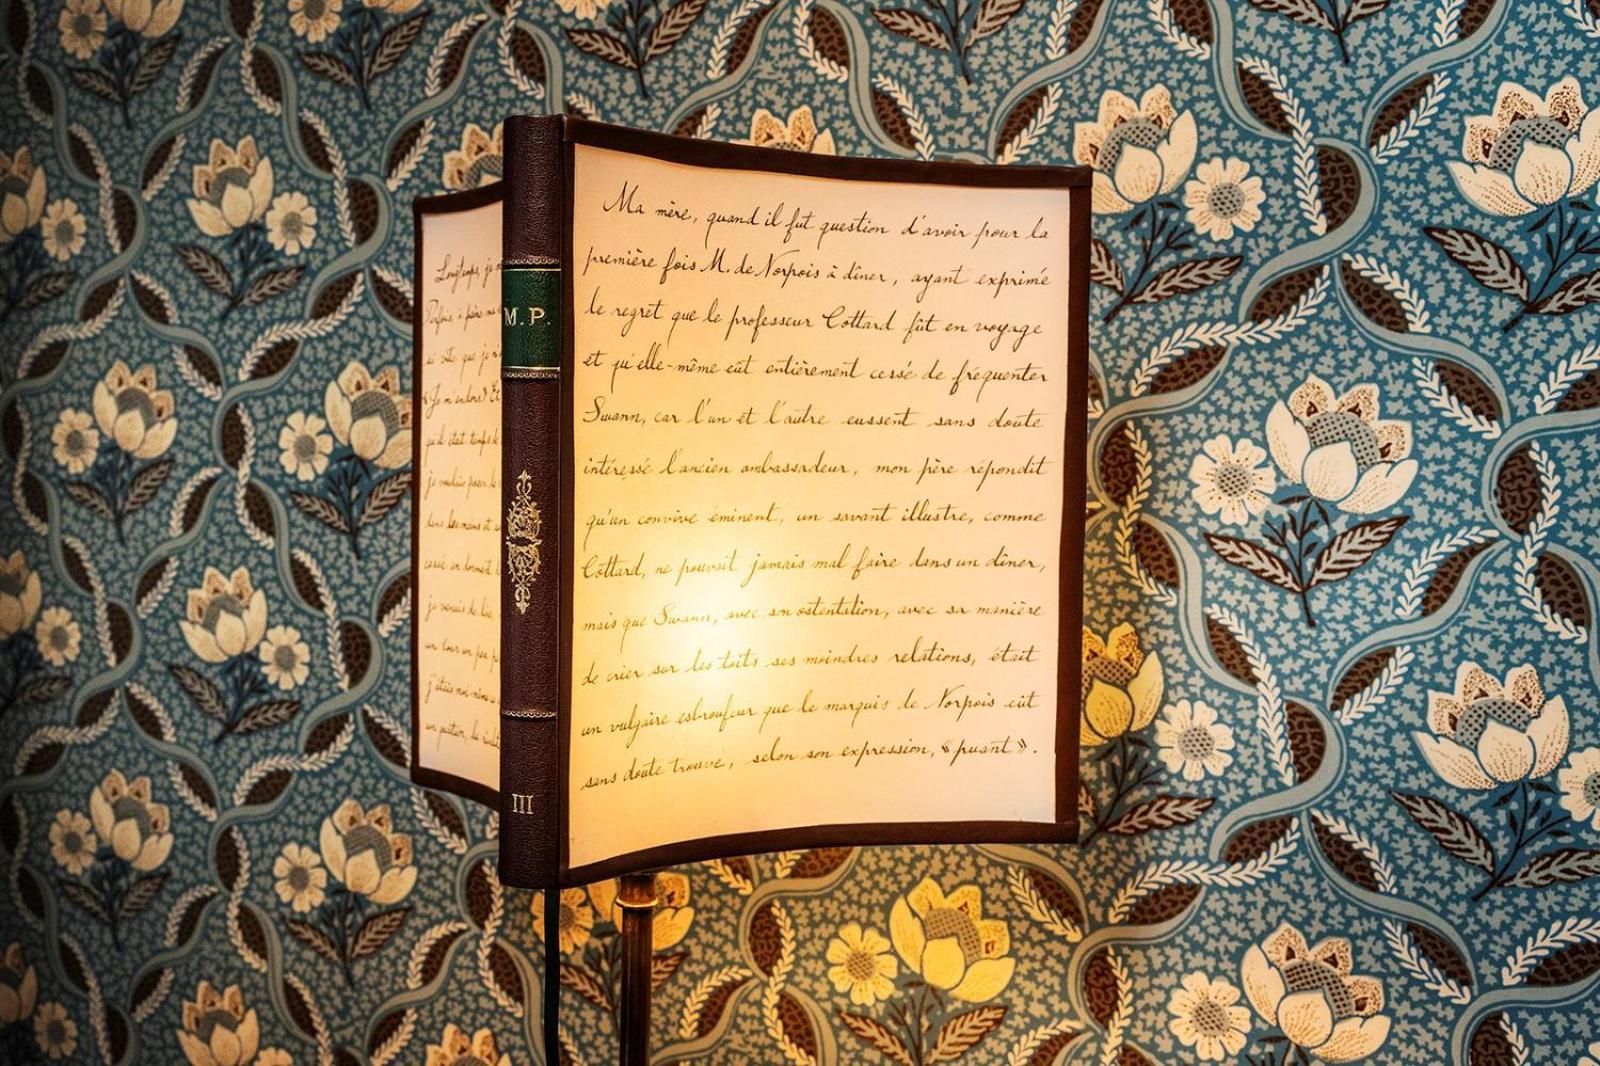 Longtemps, je
Parfois, à peine ma
si vite que je n
« Je m'endors » Et
qu'il était temps de
je voulais poser le
dans les mains et
cessé en dormant
je venais de lire
un tour un peu p
j'étais moi-même
un quatuor, la rivali
M.P.
III
Ma mère, quand il fut question d'avoir pour la
première fois M. de Norpois à dîner, ayant exprimé
le regret que le professeur Cottard fût en voyage
et qu'elle-même eût entièrement cesse de fréquenter
Swann, car l'un et l'autre eussent sans doute
intéressé l'ancien ambassadeur, mon père répondit
qu'un convive éminent, un savant illustre, comme
Cottard, ne pouvait jamais mal faire dans un dîner,
mais que Swann, avec son ostentation, avec sa manière
de crier sur les toits ses moindres relations, était
un vulgaire esbroufeur que le marquis de Norpois eût
sans doute trouvé, selon son expression, « puant ».